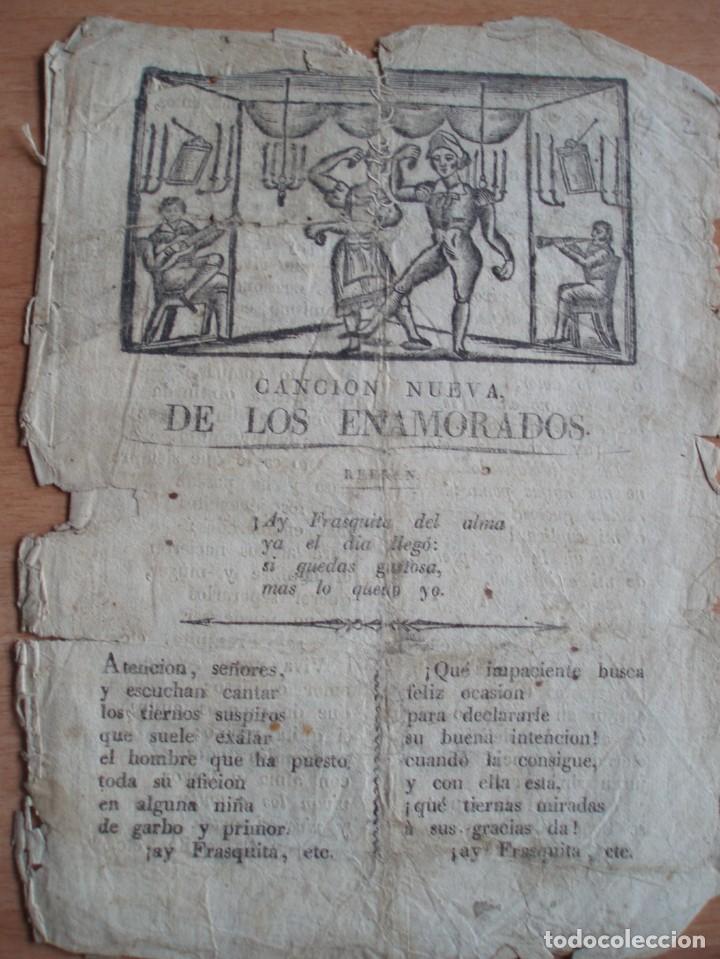 CANCION NUEVA,
DE LOS ENAMORADOS.
REFRAN.
¡Ay Frasquita del alma
ya el dia llegó:
si quedas gustosa,
mas lo quedo yo.
Atencion, señores,
y escuchan cantar
los tiernos suspiros
que suele exálar
el hombre que ha puesto
toda su aficion
en alguna niña
de garbo y primor.
¡ay Frasquita, etc.
¡Qué impaciente busca
feliz ocasion
para declararle
su buena intencion!
cuando la consigue,
y con ella está,
¡qué tiernas miradas
à sus gracias da!
¡ay Frasquita, etc.
todocoleccion